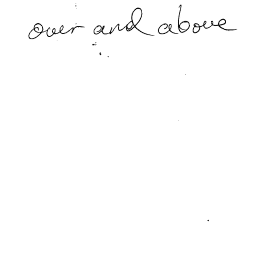 over and above